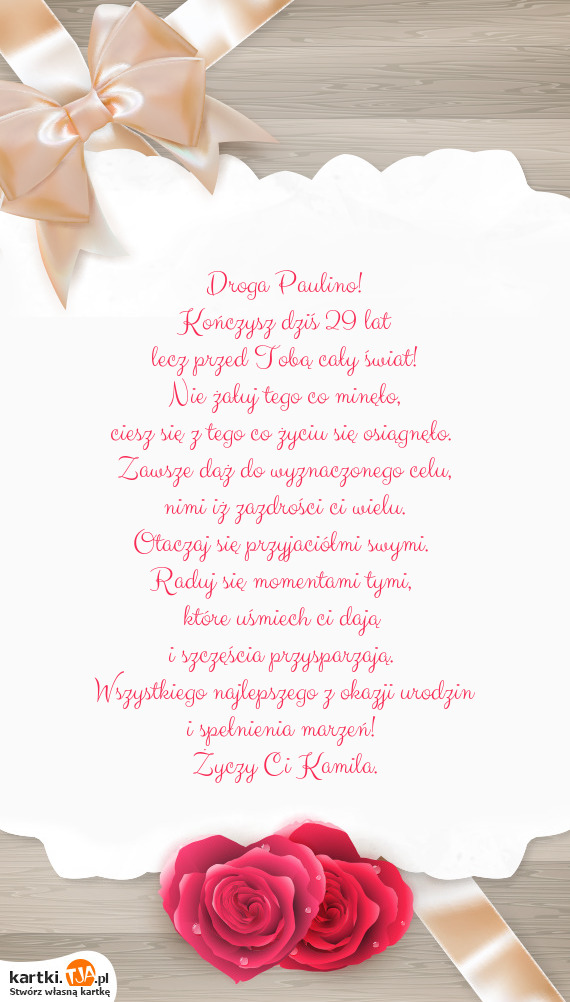 Droga Paulino!
Kończysz dziś 29 lat
lecz przed Tobą cały świat!
Nie żałuj tego co minęło,
ciesz się z tego co życiu się osiągnęło.
Zawsze dąż do wyznaczonego celu,
nimi iż zazdrości ci wielu.
Otaczaj się przyjaciółmi swymi.
Raduj się momentami tymi,
które uśmiech ci dają
i szczęścia przysparzają.
Wszystkiego najlepszego z okazji urodzin
i spełnienia marzeń!
Życzy Ci Kamila.
kartki.TJA.pl
Stwórz własną kartkę